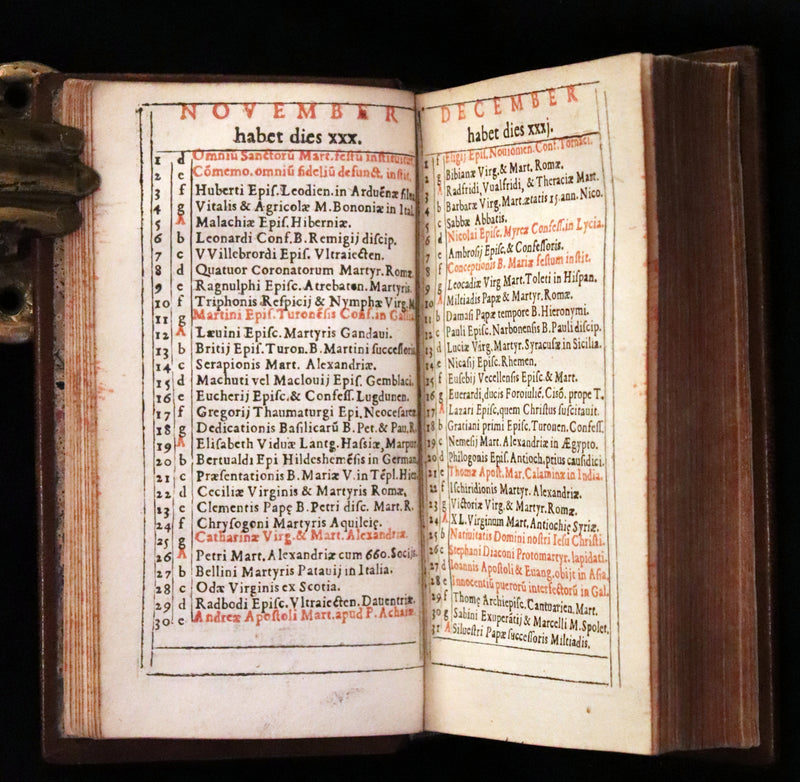 NOVEMBER
habet dies xxx.
1 d Omniū Sanctorū Mart. festū instituitur.
2 e Cōmemo. omniū fideliū defunct. instit.
3 f Huberti Epis. Leodien. in Arduēnæ silua
4 g Vitalis & Agricolæ M. Bononiæ in Ital.
5 A Malachiæ Epis. Hiberniæ.
6 b Leonardi Conf. B. Remigij discip.
7 c VVillebrordi Epis. Vltraiecten.
8 d Quatuor Coronatorum Martyr. Romæ
9 e Ragnulphi Episc. Atrebaten. Martyris.
10 f Triphonis Respicij & Nymphæ Virg. M.
11 g Martini Epis. Turonēsis Conf. in Gallia
12 A Læuini Episc. Martyris Gandaui.
13 b Britij Epis. Turon. B. Martini successoris
14 c Serapionis Mart. Alexandriæ.
15 d Machuti vel Maclouij Epis. Gemblaci.
16 e Eucherij Episc. & Confess. Lugdunen.
17 f Gregorij Thaumaturgi Epi. Neocesareæ
18 g Dedicationis Basilicarū B. Pet. & Pau. R.
19 A Elisabeth Viduæ Lantg. Hassiæ, Marpur.
20 b Bertualdi Epi Hildeshemēsis in German.
21 c Præsentationis B. Mariæ V. in Tēpl. Hier.
22 d Ceciliæ Virginis & Martyris Romæ,
23 e Clementis Papę B. Petri disc. Mart. R.
24 f Chrysogoni Martyris Aquileię.
25 g Catharinæ Virg. & Mart. Alexandriæ.
26 A Petri Mart. Alexandriæ cum 660. Socijs.
27 b Bellini Martyris Patauij in Italia.
28 c Odæ Virginis ex Scotia.
29 d Radbodi Episc. Vltraiecten. Dauentriæ.
30 e Andreæ Apostoli Mart. apud P. Achaiæ.
DECEMBER
habet dies xxxj.
1 f Eugij Epis. Nouiomen. Conf. Tornaci.
2 g Bibianæ Virg. & Mart. Romæ.
3 A Radfridi, Vualfridi, & Theraciæ Mart.
4 b Barbaræ Virg. Mart. ætatis 15. ann. Nico.
5 c Sabbæ Abbatis.
6 d Nicolai Episc. Myreæ Confess. in Lycia.
7 e Ambrosij Episc. & Confessoris.
8 f Conceptionis B. Mariæ festum instit.
9 g Leocadiæ Virg Mart. Toleti in Hispan.
10 A Miltiadis Papæ & Martyr. Romæ.
11 b Damasi Papæ tempore B. Hieronymi.
12 c Pauli Episc. Narbonensis B. Pauli discip.
13 d Luciæ Virg. Martyr. Syracusæ in Sicilia.
14 e Nicasij Episc. Rhemen.
15 f Eusebij Vecellensis Episc. & Mart.
16 g Euerardi, ducis Foroiuliē. Cisō. prope T.
17 A Lazari Episc, quem Christus suscitauit.
18 b Gratiani primi Episc. Turonen. Confess.
19 c Nemesij Mart. Alexandriæ in Ægypto.
20 d Philogonis Epis. Antioch. prius causidici.
21 e Thomæ Apost. Mar. Calaminæ in India.
22 f Ischiridionis Martyr. Alexandriæ.
23 g Victoriæ Virg. & Martyr. Romæ.
24 A XL. Virginum Mart. Antiochię Syriæ.
25 b Natiuitatis Domini nostri Iesu Christi.
26 c Stephani Diaconi Protomartyr. lapidati.
27 d Ioannis Apostoli & Euang. obijt in Asia.
28 e Innocentiū puerorū interfectorū in Gal.
29 f Thomę Archiepisc. Cantuarien. Mart.
30 g Sabini Exuperātij & Marcelli M. Spolet.
31 A Siluestri Papæ successoris Miltiadis,